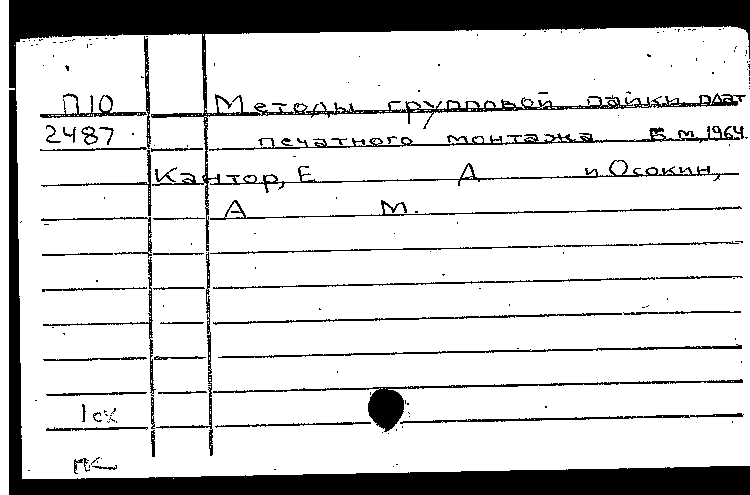 П10 Методы групповой пайки плат
2487 печатного монтажа М, 1964
Кантор, Е Д и Осокин,
А М.
1 сх